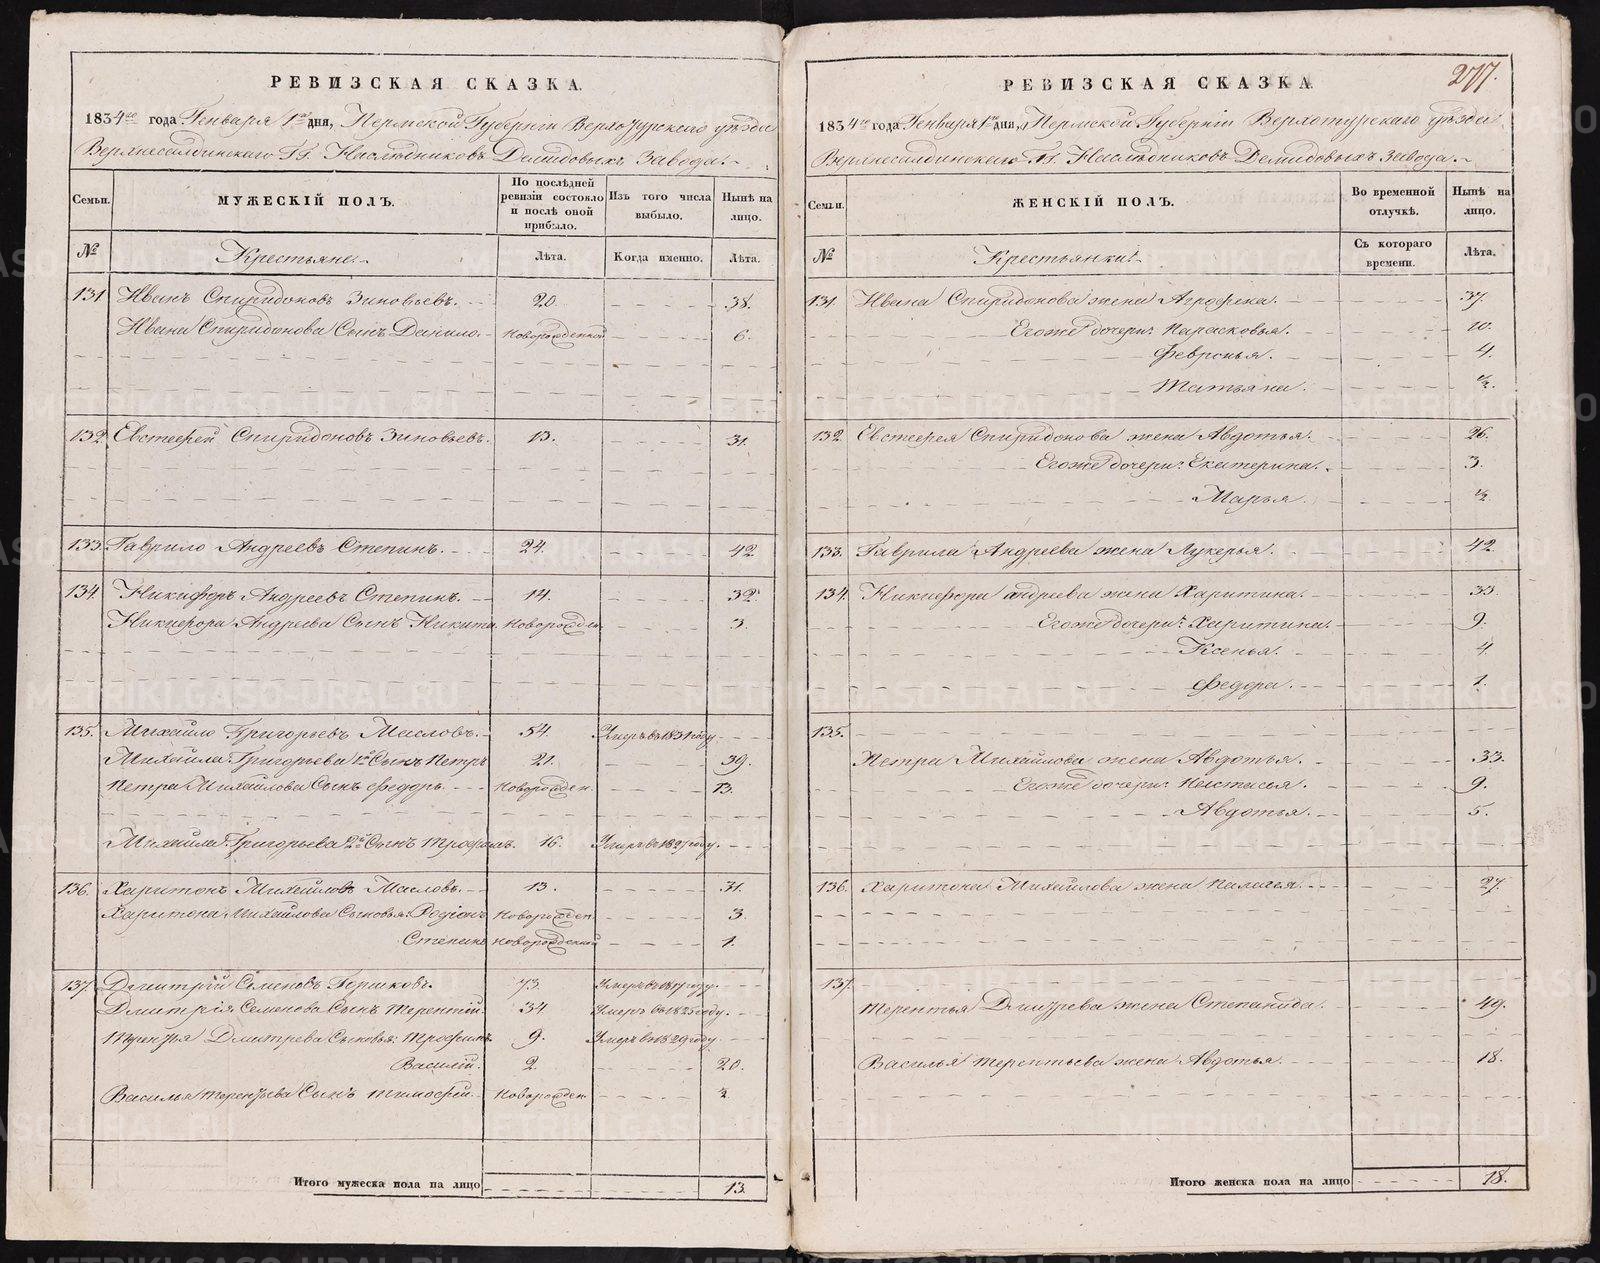 РЕВИЗСКАЯ СКАЗКА.
1834го года Генваря 1го дня, Пермской Губерніи Верхотурскаго уѣзда
Верхнесалдинскаго Гг. Наслѣдниковъ Демидовыхъ Завода.
Семьи.
МУЖЕСКІЙ ПОЛЪ.
По послѣдней ревизіи состояло и послѣ оной прибыло.
Изъ того числа выбыло.
Нынѣ на лицо.
№
Крестьяне.
Лѣта.
Когда именно.
Лѣта.
131 Иванъ Спиридоновъ Зиновьевъ. 20. 38.
Ивана Спиридонова Сынъ Данило. Новорожденной 6.
132. Евстефей Спиридоновъ Зиновьевъ. 13. 31.
133. Гаврило Андреевъ Степинъ. 24. 42.
134. Никифоръ Андреевъ Степинъ. 14. 32.
Никифора Андреева Сынъ Никита Новорожден. 3.
135. Михайло Григорьевъ Масловъ. 54. Умеръ въ 1831 году.
Михайла Григорьева 1й Сынъ Петръ 21. 39.
Петра Михайлова Сынъ Федоръ. Новорожден. 13.
Михайла Григорьева 2й Сынъ Трофимъ. 16. Умеръ въ 1827 году.
136. Харитонъ Михайловъ Масловъ. 13. 31.
Харитона Михайлова Сыновья: Родіонъ Новорожден. 3.
Степанъ Новорожденной 1.
137. Дмитрій Семеновъ Горшковъ. 73. Умеръ въ году.
Дмитрія Семенова Сынъ Терентій. 34 Умеръ въ 1825 году.
Терентья Дмитрева Сыновья: Трофимъ. 9. Умеръ въ 1829 году
Василій. 2. 20.
Василья Терентьева Сынъ Тимофей. Новорожден. 2.
Итого мужеска пола на лицо 13.
277.
РЕВИЗСКАЯ СКАЗКА
1834го года Генваря 1го дня, Пермской Губерніи Верхотурскаго уѣзда
Верхнесалдинскаго Гг. Наслѣдниковъ Демидовыхъ завода.
Семьи.
ЖЕНСКІЙ ПОЛЪ.
Во временной отлучкѣ.
Нынѣ на лицо.
№
Крестьянки.
Съ котораго времени.
Лѣта.
131. Ивана Спиридонова жена Агрофена. 37.
Егоже дочери: Парасковья. 10.
Февронья. 4.
Татьяна. 1/2.
132. Евстефея Спиридонова жена Авдотья. 26.
Егоже дочери: Екатерина. 3.
Марья. 1/2.
133. Гаврила Андреева жена Лукерья. 42.
134. Никифора Андреева жена Харитина. 33.
Егоже дочери: Харитина. 9.
Ксенья. 4.
Федора. 1.
135.
Петра Михайлова жена Авдотья. 33.
Егоже дочери: Настасья. 9.
Авдотья. 5.
136. Харитона Михайлова жена Палагея. 27.
137.
Терентья Дмитрева жена Степанида. 49.
Василья Терентьева жена Авдотья. 18.
Итого женска пола на лицо 18.
METRIKI.GASO-URAL.RU